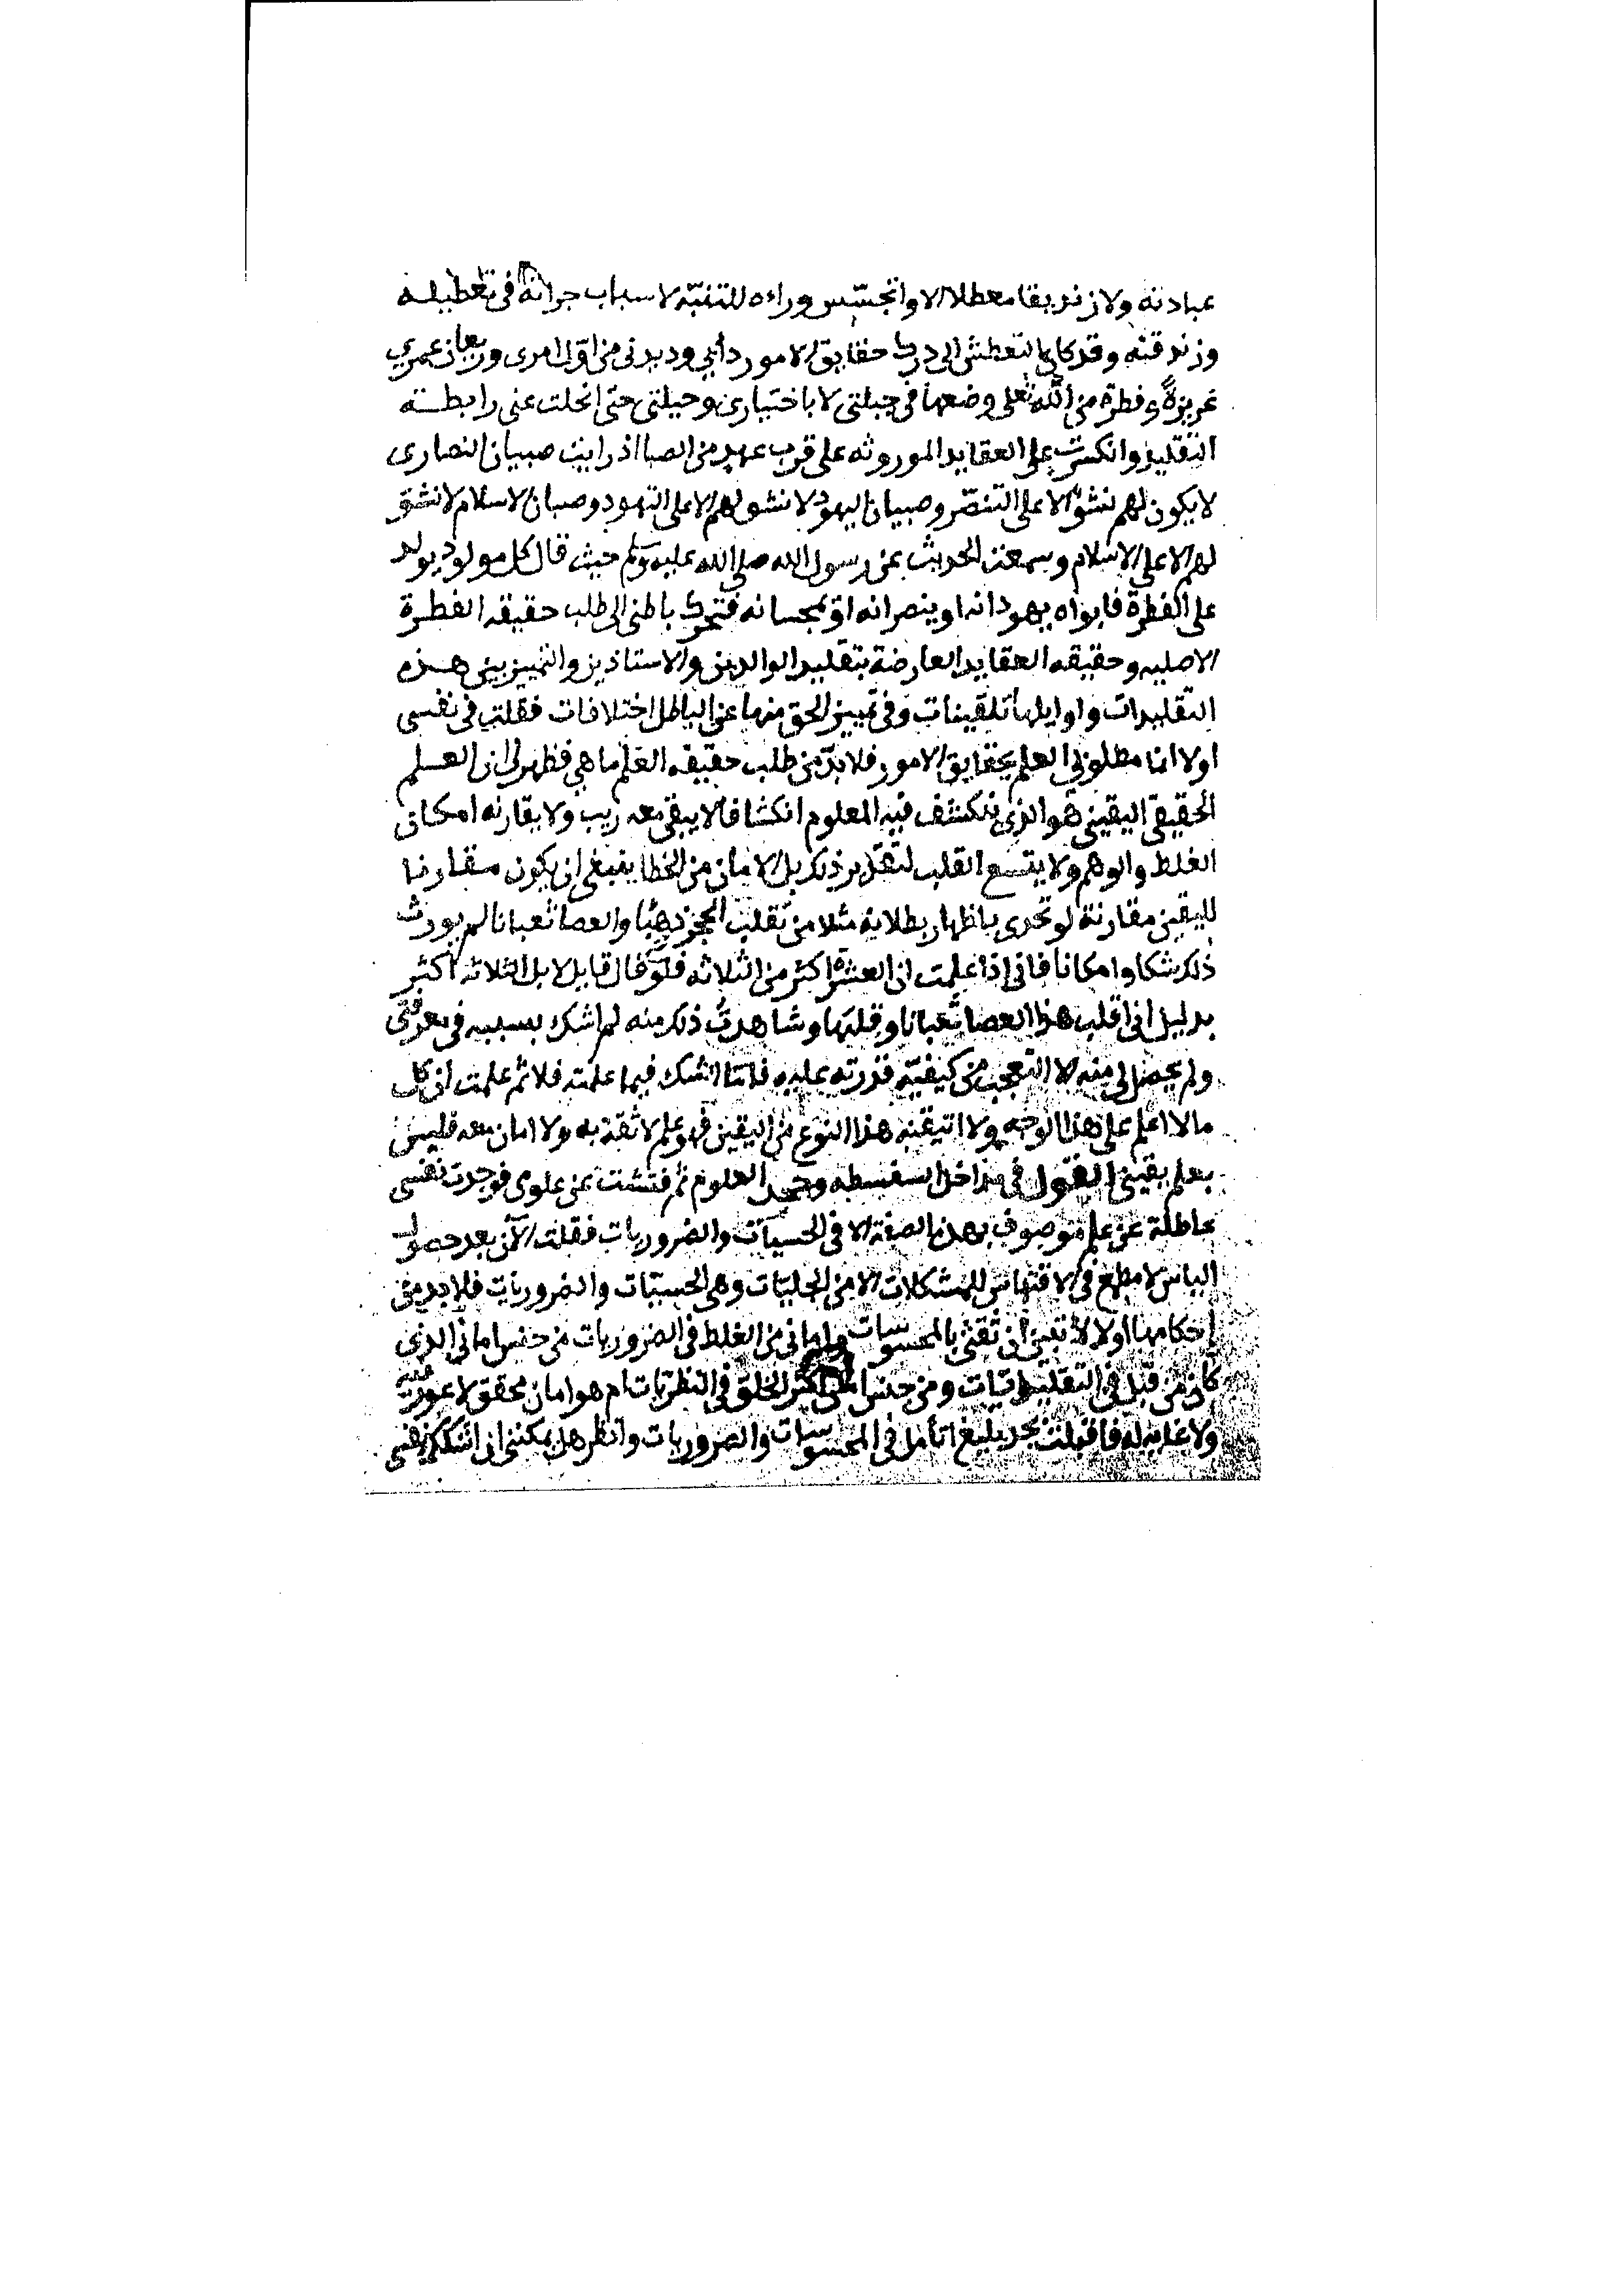 عبادته ولا زنديقا معطلا الا واتجسّس وراءه للتنبّه لاسباب جراته فى تعطيله
وزندقته وقد كان التعطش الى درك حقايق الامور دأبي وديدنى من اوّل امرى وريعان عمري
غريزةً وفطرة من الله تعلى وضعها فى جبلتى لا باختيارى وحيلتى حتى انحلت عنى رابطـته
التقليد وانكسرت على العقايد الموروثه على قرب عهد من الصبا اذ رايت صبيان النصارى
لا يكون لهم نشوٌ الا على التنصّر وصبيان اليهود لا نشو لهم الا على التهود وصبيان الاسلام لا نشو
لهم الا على الاسلام وسمعت الحديث عن رسول الله صلى الله عليه وسلم حيث قال كل مولود يولد
على الفطرة فابواه يهودانه او ينصرانه او يمجسانه فتحرك باطنى الى طلب حقيقه الفطرة
الاصليه وحقيقه العقايد العارضة بتقليد الوالدين والاستاذين والتمييز بين هـذه
التقليدات واوايلها تلقينات وفى تمييز الحق منها عن الباطل اختلافات فقلت فى نفسى
اولا انما مطلوبى العلم بحقايق الامور فلا بدّ من طلب حقيقه العلم ما هى فظهر لى ان العـلم
الحقيقى اليقينى هو الذى ينكشف فيه المعلوم انكشافا لا يبقى معه ريب ولا يقارنه امكان
الغلط والوهم ولا يتسع القلب لتقدير ذلك بل الامان من الخطا ينبغى ان يكون مقارنا
لليقين مقارنة لو تحدى باظهار بطلانه مثلا من يقلب الحجر ذهبًا والعصا ثعبانا لم يورث
ذلك شكا وامكانا فانى اذا علمت ان العشرة اكثر من الثلاثه فلو قال قايل لا بل الثلاثه اكثر
بدليل انى اقلب هذا العصا ثعبانا وقلبها وشاهدت ذلك منه لم اشك بسببه فى معرفتى
ولم يحصل لى منه الا التعجب من كيفيّه قدرته عليه فامّا الشك فيما علمته فلا ثم علمت ان كل
ما لا اعلم على هذا الوجه ولا اتيقنه هذا النوع من اليقين فهو علم لا ثقة به ولا امان معه فليس
بعلم يقينى القول فى مداخل السفسطه وجحد العلوم ثم فتشت عن علومى فوجدت نفسى
عاطلة عن علم موصوف بهذه الصفة الا فى الحسيّات والضروريات فقلت الآن بعد حصول
الياس لا مطمع فى الاقتباس للمشكلات الا من الجليّات وهى الحسيّات والضروريات فلا بد من
احكامها اولا لأتبين ان ثقتى بالمحسوسات وامانى من الغلط فى الضروريات من جنس امانى الذى
كان من قبل فى التقليديات ومن جنس امان اكثر الخلق فى النظريّات ام هو امان محقق لا غور فيه
ولا غايه له فاقبلت بجد بليغ اتأمل فى المحسوسات والضروريات وانظر هل يمكننى ان اشكك نفسى